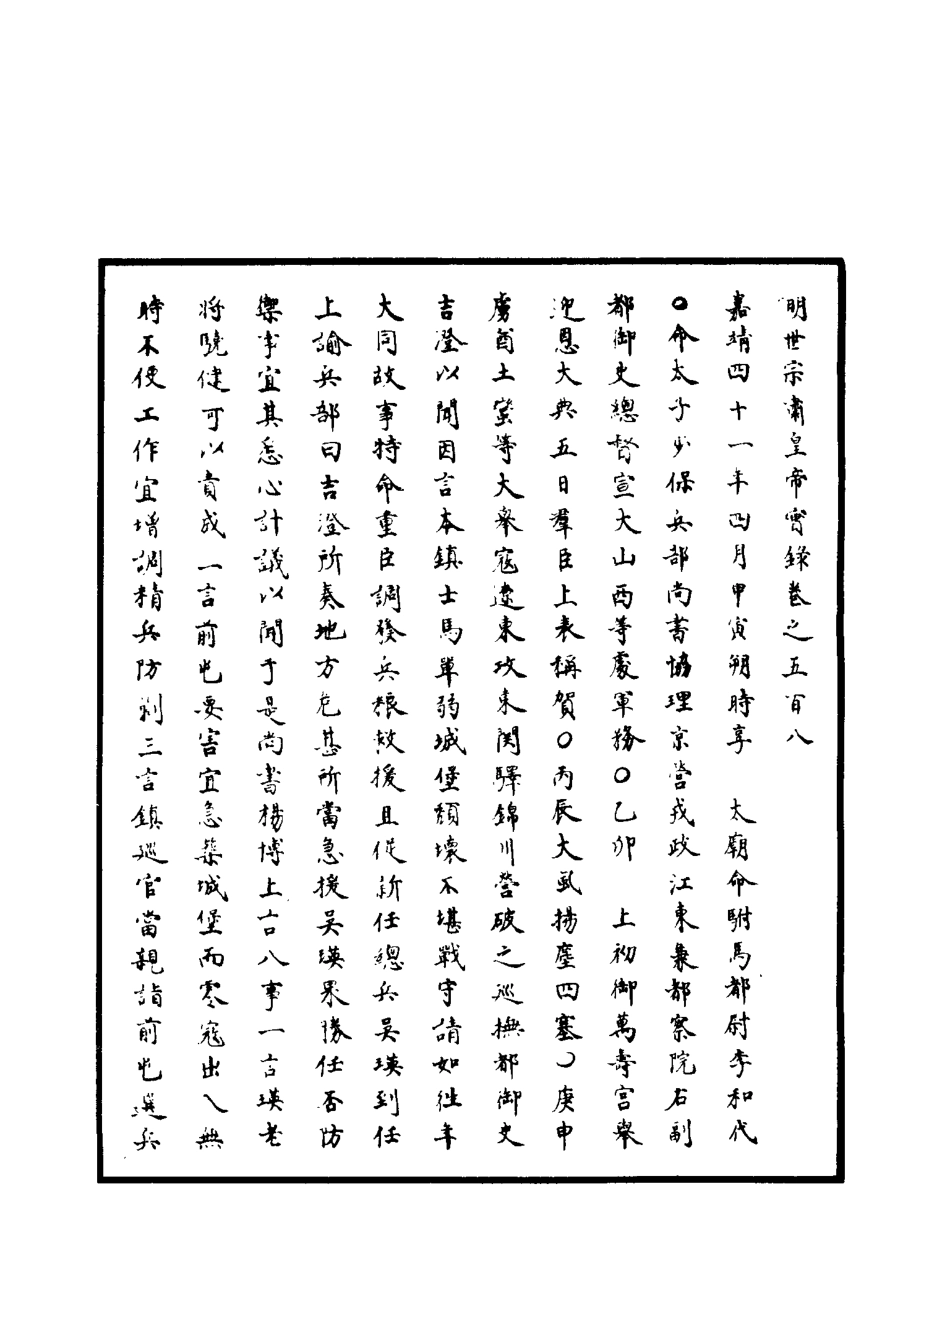 明世宗肅皇帝實錄卷之五百八
嘉靖四十一年四月甲寅朔時享　太廟命駙馬都尉李和代
○命太子少保兵部尚書協理京營戎政江東兼都察院右副
都御史總督宣大山西等處軍務○乙卯　上初御萬壽宮舉
迎恩大典五日羣臣上表稱賀○丙辰大風揚塵四塞○庚申
虜酋土蠻等大舉寇遼東攻東関驛錦川營破之巡撫都御史
吉澄以聞因言本鎮士馬單弱城堡頹壞不堪戰守請如徃年
大同故事特命重臣調發兵粮救援且促新任總兵吳瑛到任
上諭兵部曰吉澄所奏地方危甚所當急援吳瑛果勝任否防
禦事宜其悉心計議以聞于是尚書楊博上言八事一言瑛老
將驍健可以責成一言前屯要害宜急築城堡而零寇出入無
時不便工作宜增調精兵防剿三言鎮巡官當親詣前屯選兵